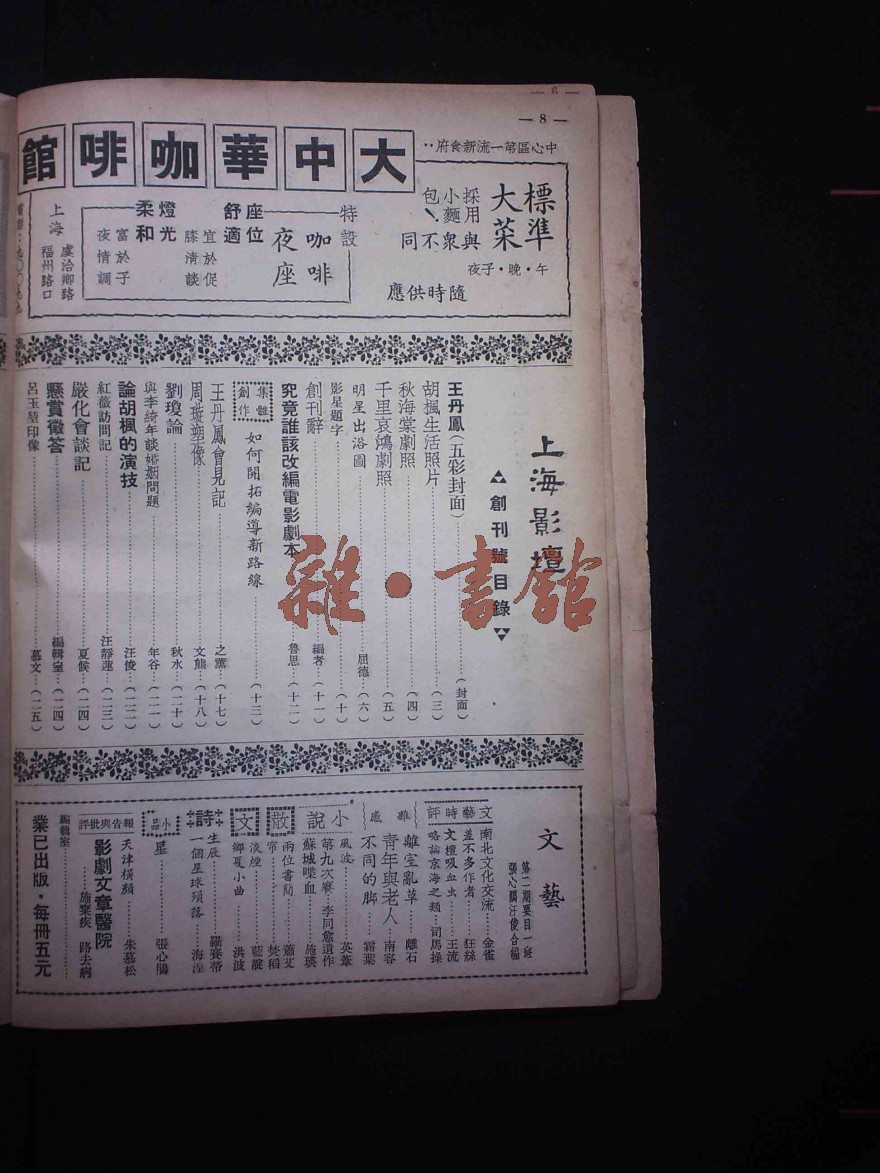 — 8 —
中心區第一流新食府‥
大中華咖啡館
標準大菜
採用與
小麵眾
包、不同
午・晚・子夜
隨時供應
特設
咖啡
夜座
座位
舒適
宜於促
膝清談
燈光
柔和
富於子
夜情調
上海
虞洽卿路
福州路口
上海影壇
創刊號目錄
王丹鳳(五彩封面)……(封面)
胡楓生活照片……(三)
秋海棠劇照……(四)
千里哀鴻劇照……(五)
明星出浴圖……屈德…(六)
影星題字……(十)
創刊辭……編者…(十一)
究竟誰該改編電影劇本……魯思…(十二)
集體創作 如何開拓編導新路線……(十三)
王丹鳳會見記……之薰…(十七)
周璇塑像……文熊…(十八)
劉瓊論……秋水…(二十)
與李綺年談婚姻問題……年谷…(二一)
論胡楓的演技……汪俊…(二二)
紅薇訪問記……汪靜蓮…(二三)
嚴化會談記……夏候…(二四)
懸賞徵答……編輯室…(二四)
呂玉堃印像……慕文…(二五)
文藝
第二期要目一班
張心鵑汪俊合編
文藝時評
南北文化交流……金雀
差不多作者……狂絲
文壇吸血虫……王流
略論京海之類……司馬操
雜感
離室亂草……離石
青年與老人……南容
不同的脚……霜葉
小說
風波……英葦
第九次賽……李同愈遺作
蘇城喋血……施瑛
散文
兩位書簡……蕭艾
帘……焚稻
淡煙……藍靛
鄉夏小曲……洪波
詩
生辰……羅賽蒂
一個星球殞落……海涅
小品
星……張心鵑
報告與批評
天津橫顏……朱慕松
影劇文章醫院……施棄疾 路去病
編輯室……
業已出版・每冊五元
雜・書館